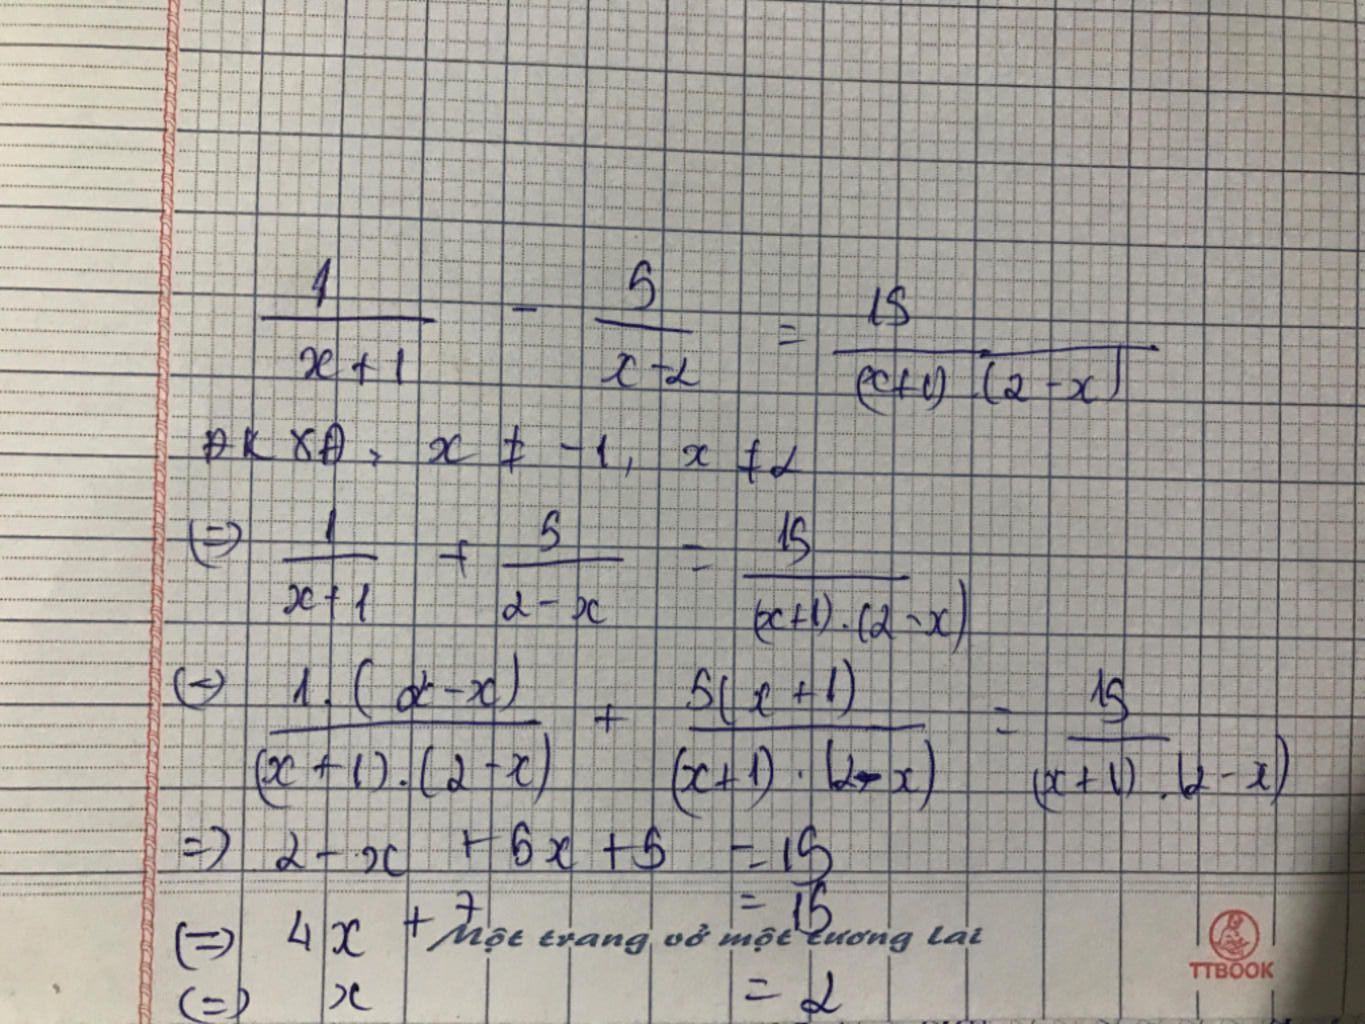 1/(x+1) - 5/(x-2) = 15/((x+1).(2-x))
ĐKXĐ: x ≠ -1, x ≠ 2
(=) 1/(x+1) + 5/(2-x) = 15/((x+1).(2-x))
(=) 1.(2-x)/((x+1).(2-x)) + 5(x+1)/((x+1).(2-x)) = 15/((x+1).(2-x))
=> 2-x + 5x + 5 = 15
(=) 4x + 7 = 15
Một trang vở một tương lai
TTBOOK
(=) x = 2